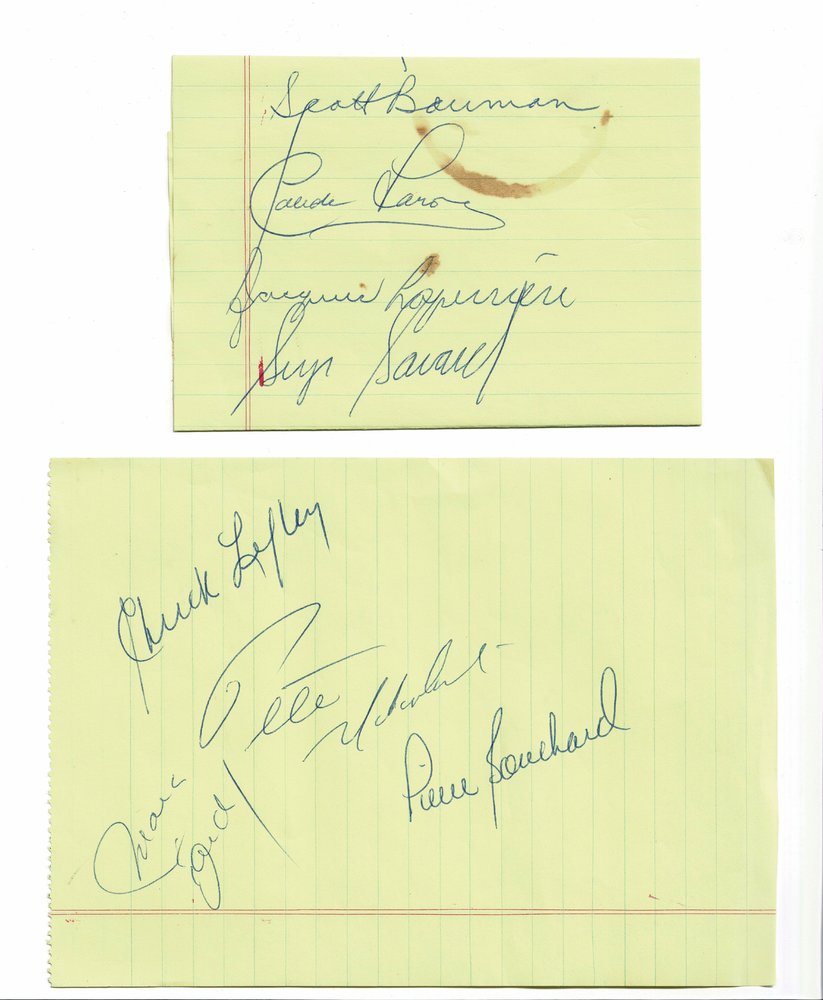 Scott Bowman
Claude Larose
Jacques Laperrière
Serge Savard
Chuck Lefley
Pete Mahovlich
Pierre Bouchard
Marc Tardif